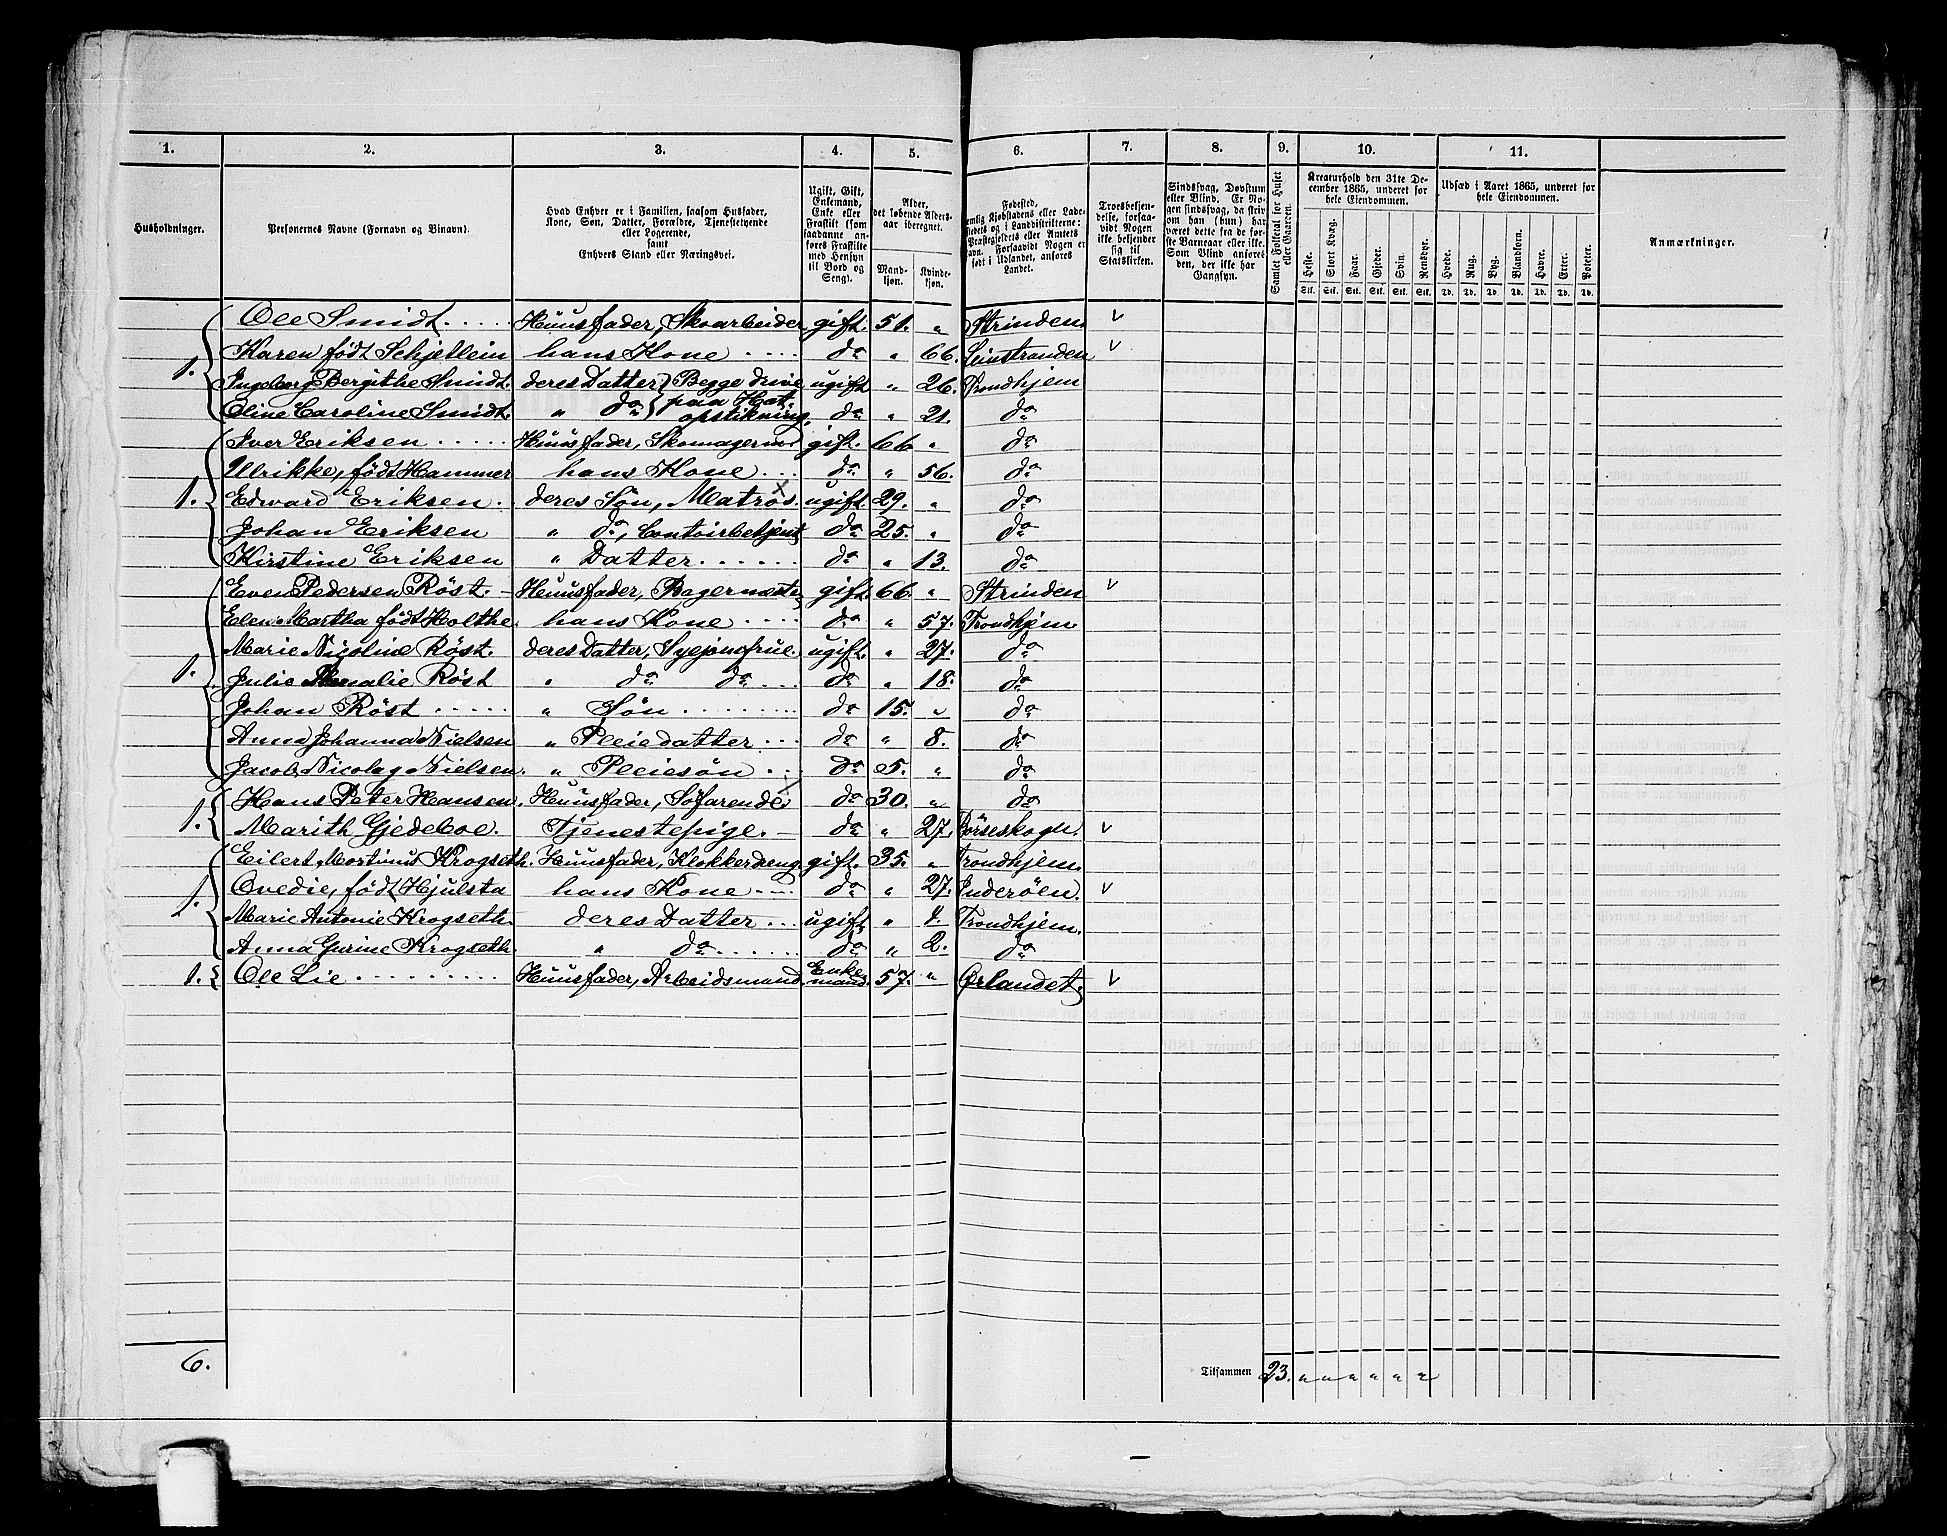 1. 2. 3. 4. 5. 6. 7. 8. 9. 10. 11.
Husholdninger.
Personernes Navne (Fornavn og Binavn).
Hvad Enhver er i Familien, saasom Husfader,
Kone, Søn, Datter, Forældre, Tjenestetyende
eller Logerende,
samt
Enhvers Stand eller Næringsvei.
Ugift, Gift,
Enkemand,
Enke eller
Fraskilt (som
saadanne an-
føres Fraskilte
med Hensyn
til Bord og
Seng).
Alder,
det løbende Alders-
aar iberegnet.
Mand-
kjøn.
Kvinde-
kjøn.
Fødested,
Troesbekjen-
delse, forsaa-
vidt Nogen
ikke bekjender
sig til
Statskirken.
Sindssvag, Døvstum
eller Blind. Er No-
gen sindssvag, da skriv
om han (hun) har
været dette fra de før-
ste Barneaar eller ikke.
Som Blind anføres
den, der ikke har
Gangsyn.
Samlet Folketal for Huset
eller Gaarden.
Kreaturhold den 31te De-
cember 1865, underet for
hele Eiendommen.
Heste. Stort Kvæg. Faar. Gjeder. Svin. Rensdyr.
Stk. Stk. Stk. Stk. Stk. Stk.
Udsæd i Aaret 1865, underet for
hele Eiendommen.
Hvede. Rug. Byg. Blandkorn. Havre. Erter. Poteter.
Td. Td. Td. Td. Td. Td. Td.
Anmærkninger.
Ole Smidt. Huusfader, Skoarbeider gift. 51. " Strinden. v
1. Karen født Schjetlein hans Kone do " 66. Leinstranden v
Ingeborg Bergithe Smidt. deres Datter } Begge drive ugift " 26. Trondhjem
Oline Caroline Smidt. " do } paa Hat- do " 21. do
opstikning.
Iver Eriksen Huusfader, Skomagerm gift. 66 " do
Ullrikke, født Hammer hans Kone do " 56. do
1. Edward Eriksen. deres Søn, Matros. x ugift. 29. " do
Johan Eriksen " do, Contoirbetjent do 25. " do
Kirstine Eriksen " Datter do " 13. do
Even Pedersen Röst. Huusfader, Bagermester gift 66. " Strinden v
Elen Martha født Holthe. hans Kone do " 57. Trondhjem
Marie Nicoline Röst. deres Datter, Syejomfrue. ugift. " 27. do
1. Julie Amalie Röst " do do do " 18. do
Johan Röst " Søn do 15. " do
Anna Johanna Nielsen " Pleiedatter do " 8. do
Jacob Nicolay Nielsen. " Pleiesøn do 5. " do
Hans Peter Hansen. Huusfader, Søfarende do 30. " do
1. Marith Gjedeboe. Tjenestepige. do " 27. Börseskogn. v
Eilert Mortinus Krogseth. Huusfader, Klokkerdreng. gift. 35. " Trondhjem.
1. Ovedie, født Hjulsta hans Kone do " 27. Inderöen. v
Marie Antonie Krogseth. deres Datter ugift. " 4. Trondhjem.
Anna Gurine Krogseth. " do do " 2. do
1. Ole Lie Huusfader, Arbeidsmand. Enke- mand. 57. " Ørlandet. v
6.
Tilsammen 23. " " " " " "